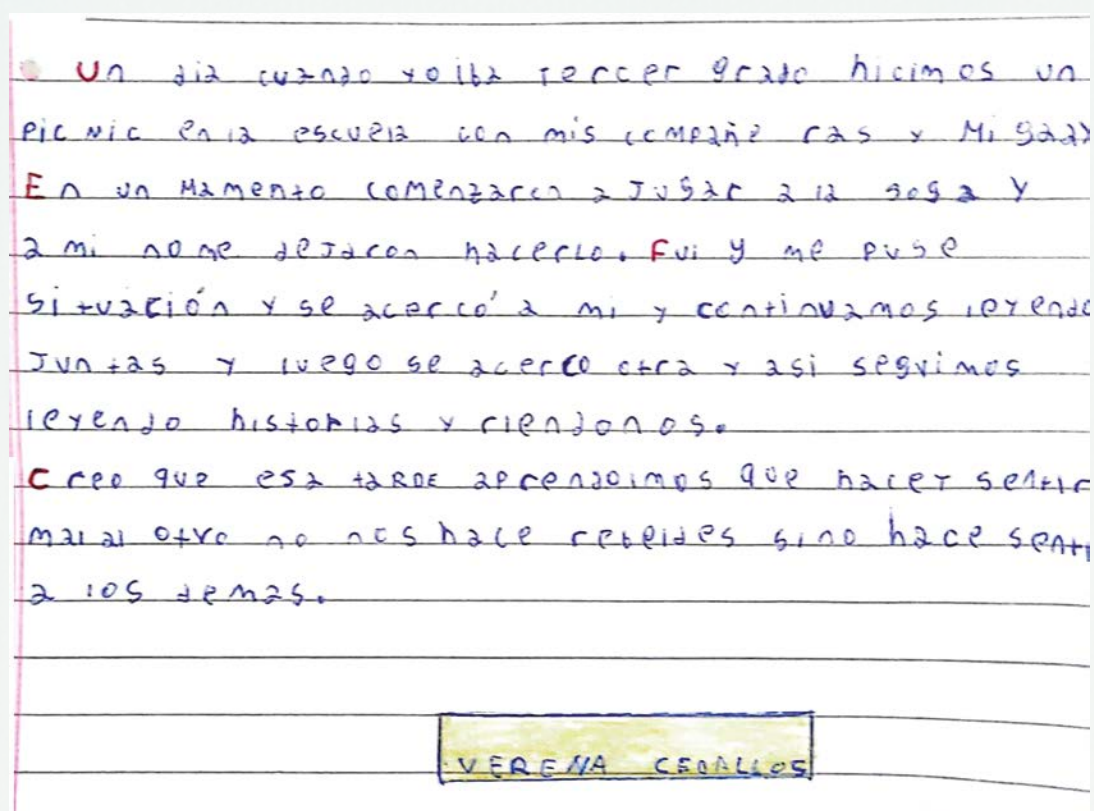 Un dia cuando yo iba tercer grado hicimos un
Pic Nic en la escuela con mis compañe ras y Mi
En un Mamento comenzaron a Jugar a la soga y
a mi no me dejaron hacerlo. Fui y me puse
situación y se acercó a mi y continuamos leyendo
Juntas y luego se acerco otra y asi seguimos
leyendo historias y riendonos.
Creo que esa taRDE aprendoimos que hacer sentir
mal al otro no nos hace rebeldes sino hace senti
a los demas.
VERENA CEBALLOS